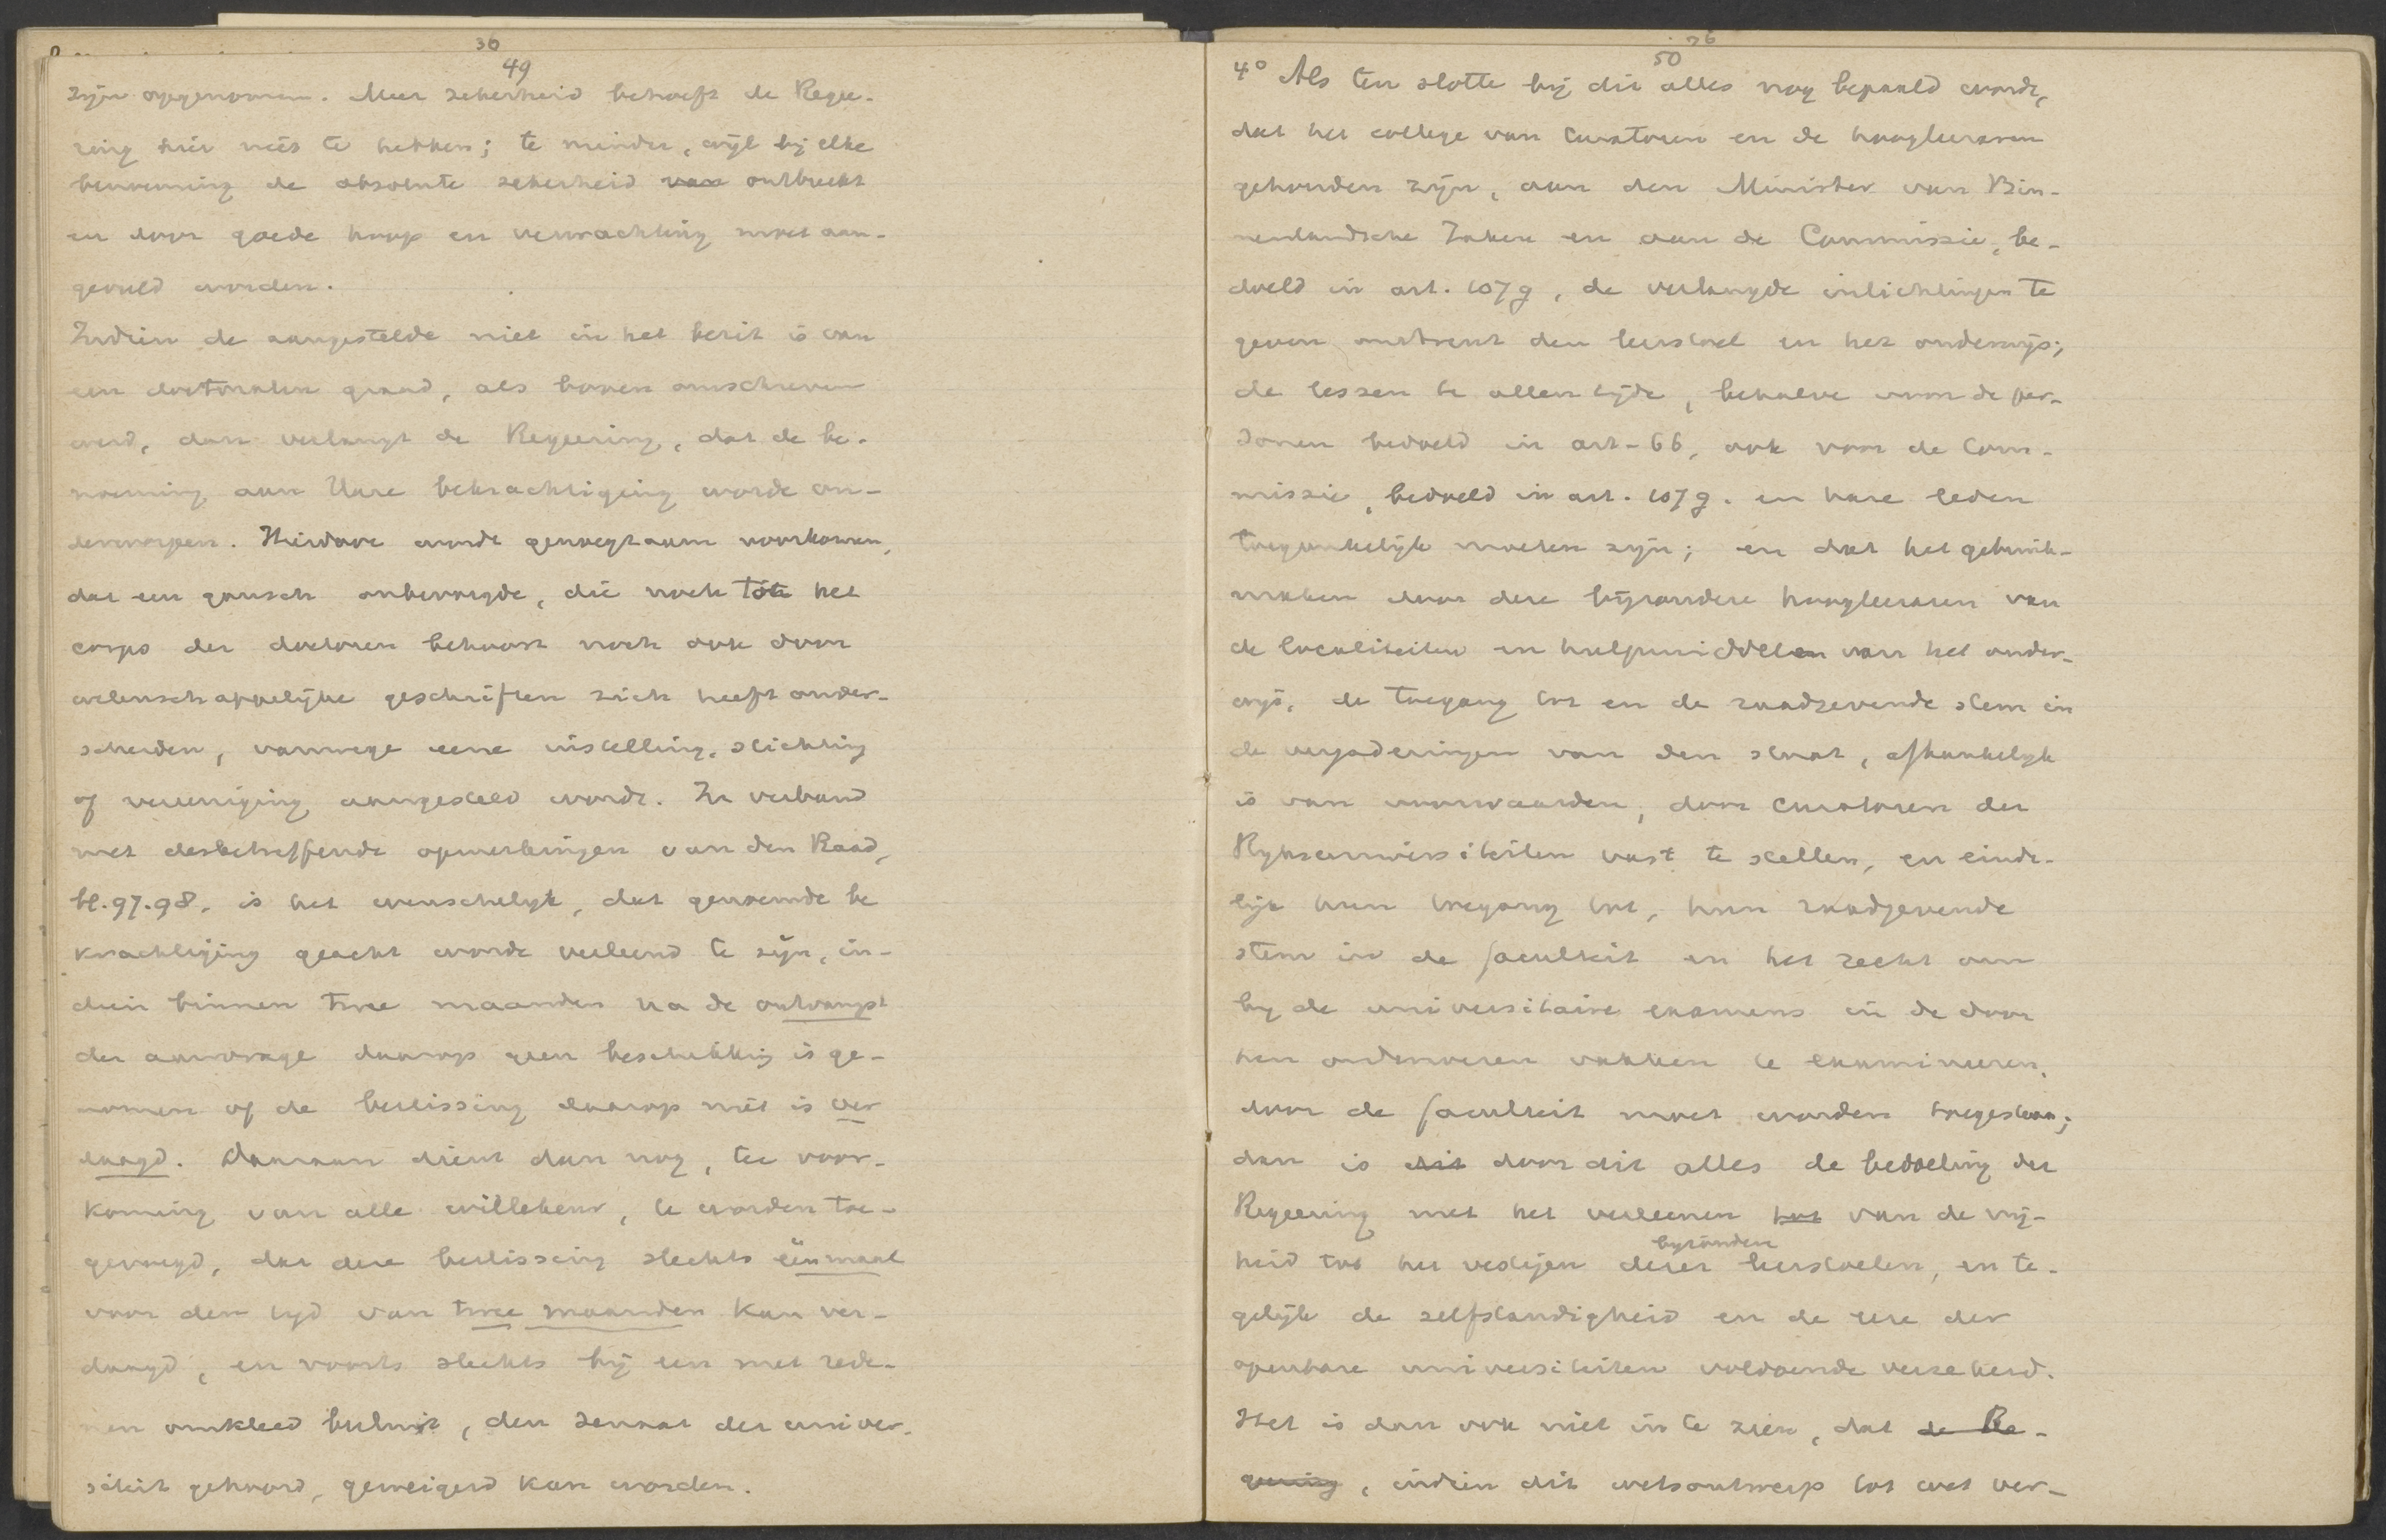 36
49
zijn opgenomen. Meer zekerheid behoeft de Regee-
ring hier niet te hebben; te minder, wijl bij elke
benoeming de absolute zekerheid van ontbreekt
en door goede hoop en verwachting moet aan-
gevuld worden.
Indien de aangestelde niet in het bezit is van
een doctoralen graad, als boven omschreven
werd, dan verlangt de Regeering, dat de be-
noeming aan Hare bekrachtiging worde on-
derworpen. Hierdoor wordt genoegzaam voorkomen,
dat een gansch onbevoegde, die noch tot het
corps der doctoren behoort noch ook door
wetenschappelijke geschriften zich heeft onder-
scheiden, vanwege eene instelling, stichting
of vereeniging aangesteld wordt. In verband
met desbetreffende opmerkingen van den Raad,
bl. 97.98, is het wenschelijk, dat genoemde be
krachtiging geacht worde verleend te zijn, in-
dien binnen twee maanden na de ontvangst
der aanvrage daarop geen beschikking is ge-
nomen of de beslissing daarop niet is ver
daagd. Daaraan dient dan nog, ter voor-
koming van alle willekeur, te worden toe-
gevoegd, dat deze beslissing slechts éénmaal
voor den tijd van twee maanden kan ver-
daagd, en voorts slechts bij een met rede-
nen omkleed besluit, den senaat der univer-
siteit gehoord, geweigerd kan worden.
36
50
4° Als ten slotte bij dit alles nog bepaald wordt,
dat het college van curatoren en de hoogleeraren
gehouden zijn, aan den Minister van Bin-
nenlandsche Zaken en aan de Commissie, be-
doeld in art. 107g, de verlangde inlichtingen te
geven omtrent den leerstoel en het onderwijs;
de lessen te allen tijde, behalve voor de per-
sonen bedoeld in art-66, ook voor de Com-
missie, bedoeld in art. 107g. en hare leden
toegankelijk moeten zijn; en dat het gebruik-
maken door deze bijzondere hoogleeraren van
de localiteiten en hulpmiddelen van het onder-
wijs, de toegang tot en de raadgevende stem in
de vergaderingen van den senaat, afhankelijk
is van voorwaarden, door curatoren der
Rijksuniversiteiten vast te stellen, en einde-
lijk hun toegang tot, hun raadgevende
stem in de faculteit en het recht om
bij de universitaire examens in de door
hen onderwezen vakken te examineeren,
door de faculteit moet worden toegestaan;
dan is dit door dit alles de bedoeling der
Regeering met het verleenen tot van de vrij-
bijzonder
heid tot het vestigen dezer leerstoelen, en te-
gelijk de zelfstandigheid en de eere der
openbare universiteiten voldoende verzekerd.
Het is dan ook niet in te zien, dat de Re-
geering, indien dit wetsontwerp tot wet ver-